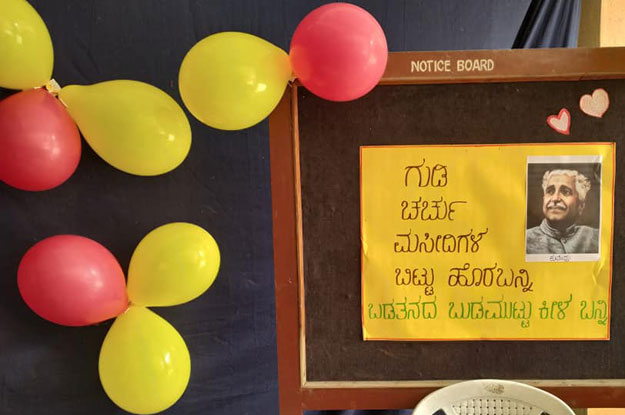 NOTICE BOARD
ಗುಡಿ
ಚರ್ಚು
ಮಸೀದಿಗಳ
ಬಿಟ್ಟು ಹೊರಬನ್ನಿ
ಬಡತನದ ಬುಡಮುಟ್ಟು ಕೀಳ ಬನ್ನಿ
ಕುವೆಂಪು